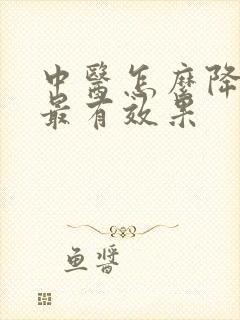 中醫怎麼降
最有效果
魚醬